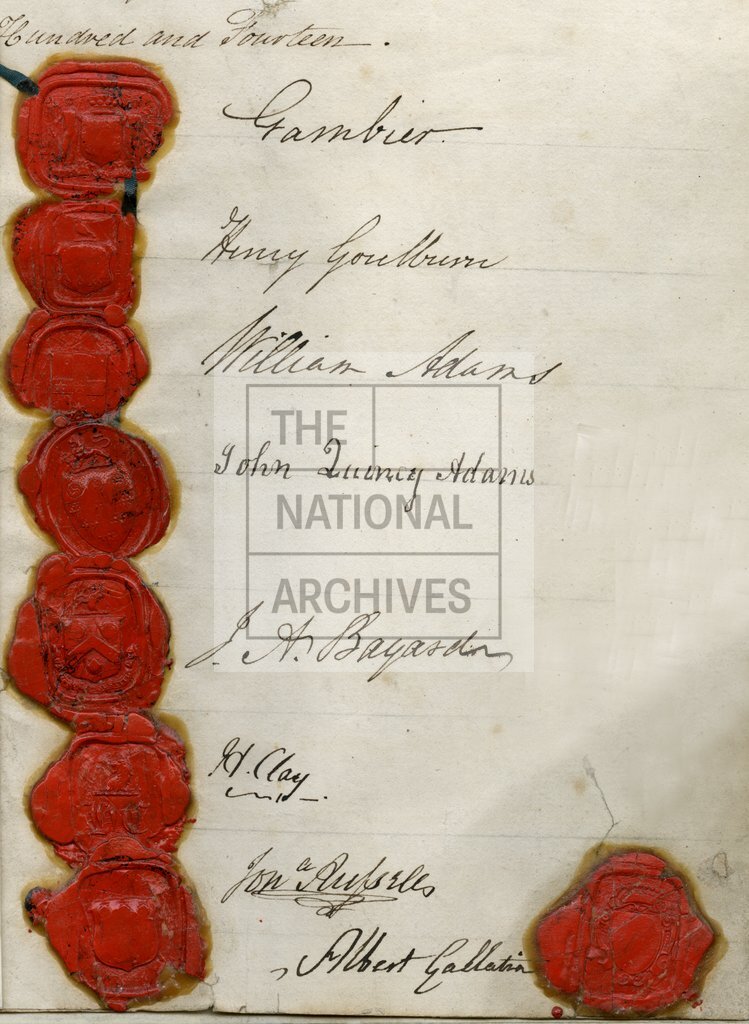 Hundred and Fourteen.
Gambier.
Henry Goulburn
William Adams
THE
John Quincy Adams
NATIONAL
ARCHIVES
J. A. Bayard
H. Clay
Jon.a Russell
Albert Gallatin